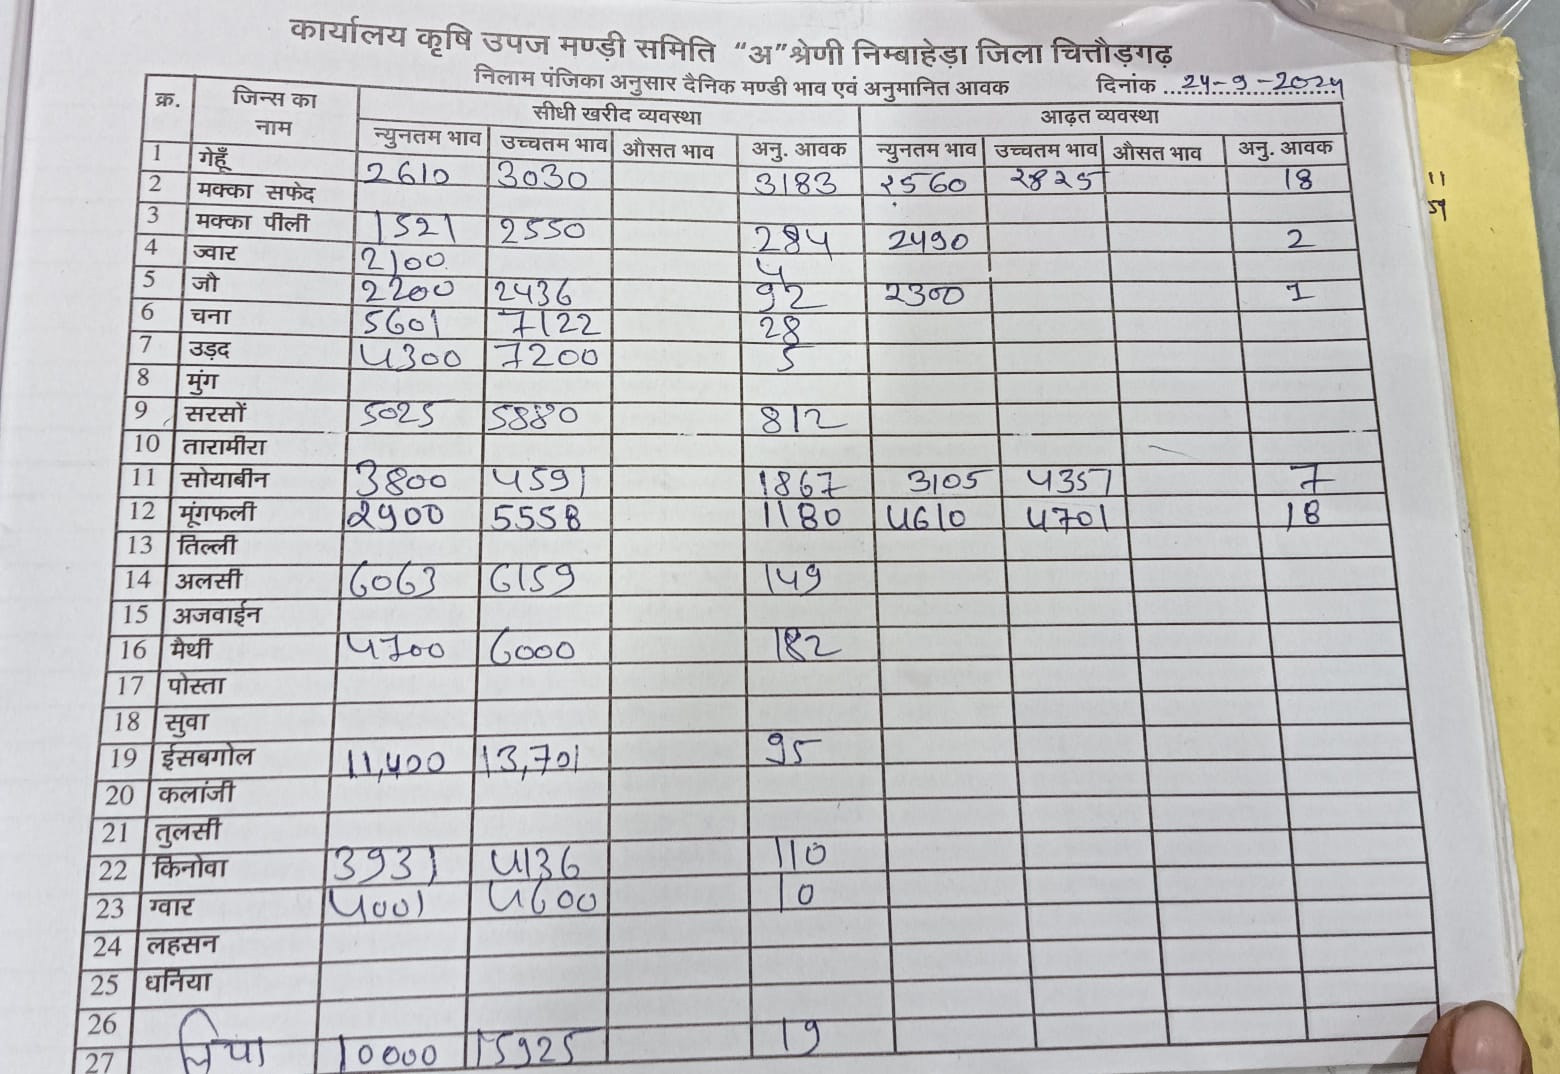 कार्यालय कृषि उपज मण्डी समिति "अ" श्रेणी निम्बाहेड़ा जिला चित्तौड़गढ़
निलाम पंजिका अनुसार दैनिक मण्डी भाव एवं अनुमानित आवक दिनांक 24-9-2024
क्र. जिन्स का नाम सीधी खरीद व्यवस्था आढ़त व्यवस्था
न्युनतम भाव उच्चतम भाव औसत भाव अनु. आवक न्युनतम भाव उच्चतम भाव औसत भाव अनु. आवक
1 गेहूँ 2610 3030 3183 2560 2825 18
2 मक्का सफेद
3 मक्का पीली 1521 2550 284 2490 2
4 ज्वार 2100 4
5 जौ 2200 2436 92 2300 1
6 चना 5601 7122 28
7 उड़द 4300 7200 5
8 मुंग
9 सरसों 5025 5880 812
10 तारामीरा
11 सोयाबीन 3800 4591 1867 3105 4357 7
12 मूंगफली 2900 5558 1180 4610 4701 18
13 तिल्ली
14 अलसी 6063 6159 149
15 अजवाईन
16 मैथी 4700 6000 182
17 पोस्ता
18 सुवा
19 ईसबगोल 11,400 13,701 95
20 कलांजी
21 तुलसी
22 किनोवा 3931 4136 110
23 ग्वार 4001 4600 10
24 लहसन
25 धनिया
26
27 चिया 10000 15925 19